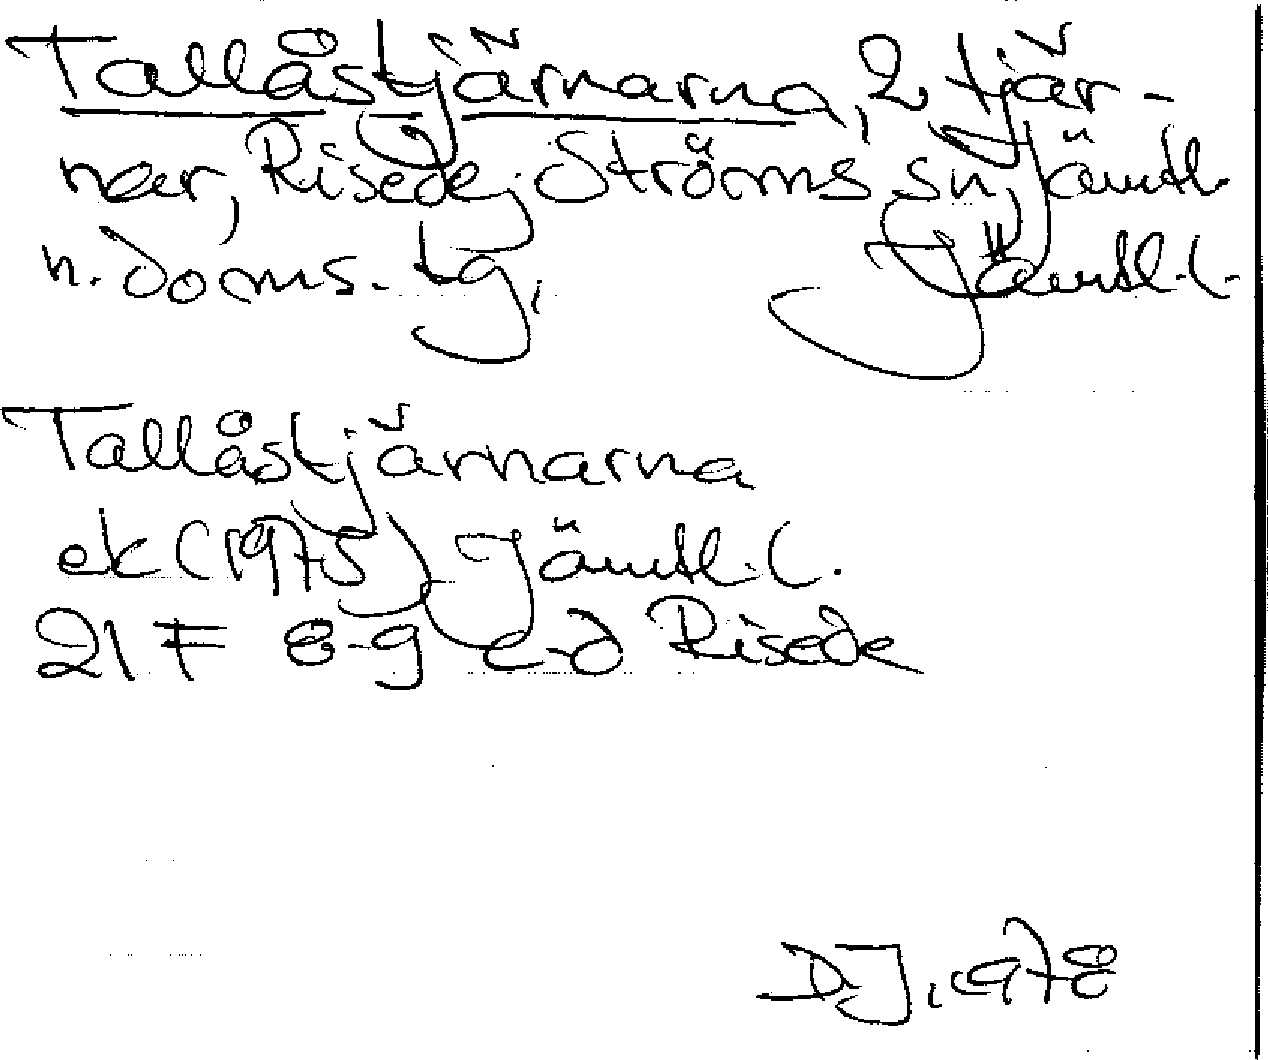 Tallåstjärnarna, 2 tjär-
nar, Risede, Ströms sn, Jämtl.
n. doms. tg, Jämtl. l.
Tallåstjärnarna
ek (1975) Jämtl. l.
21 F 8-g c-d Risede
DJ, 1978